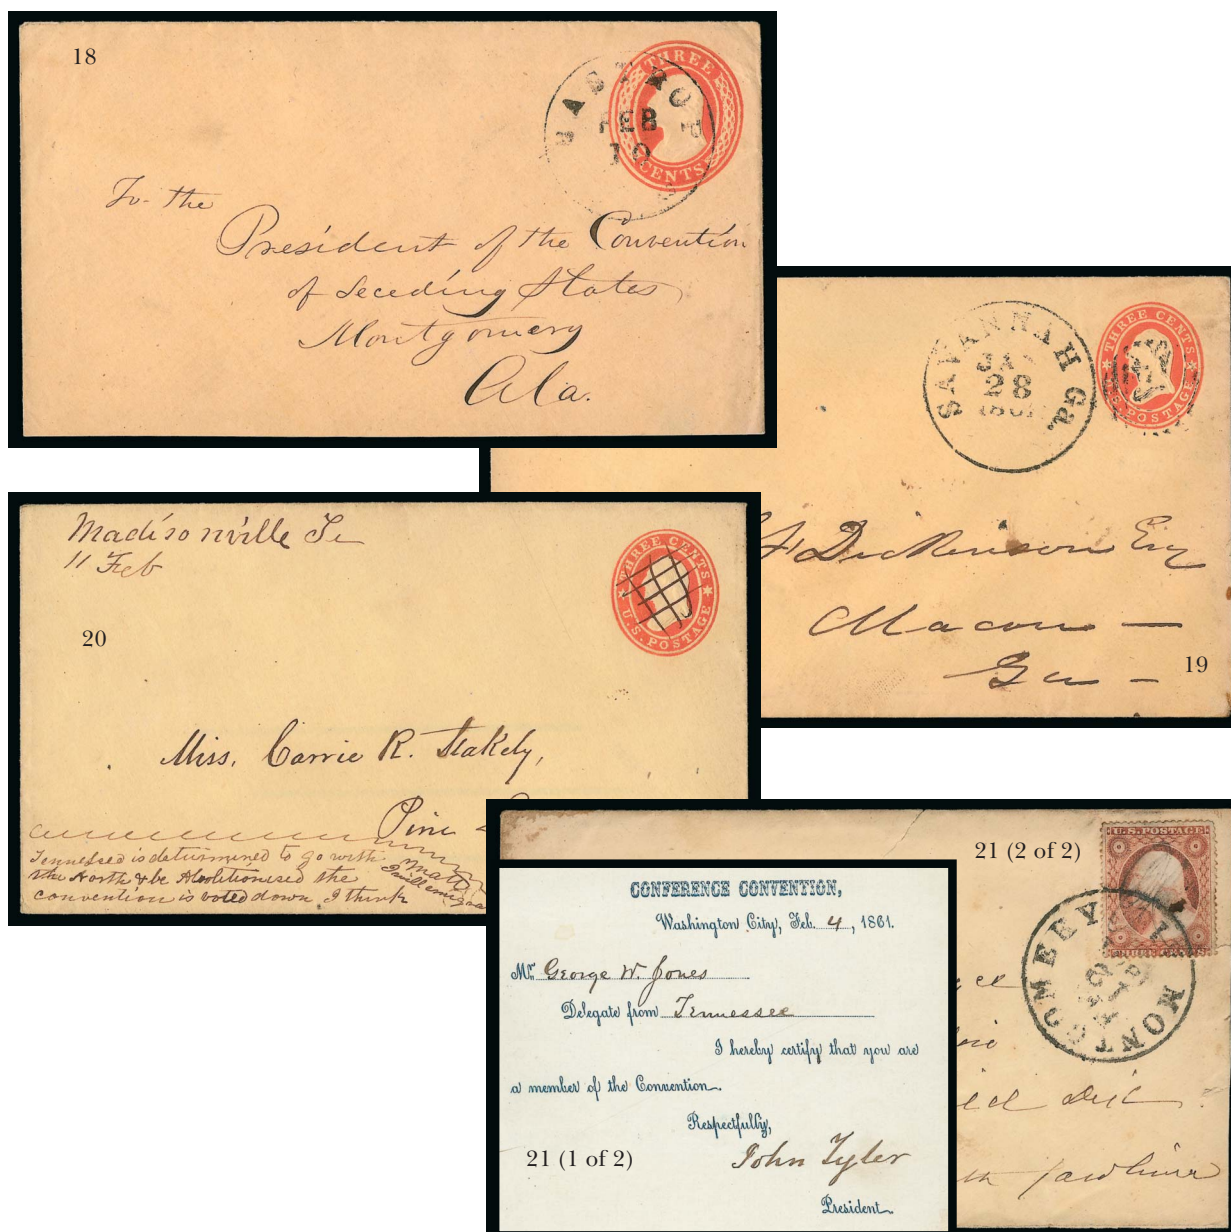 18
THREE
CENTS
FEB
10
To the
President of the Convention
of Seceding States
Montgomery
Ala.
SAVANNAH Ga.
JAN
28
1861
THREE CENTS
U.S. POSTAGE
Dickenson Esq
Macon —
Geo —
19
Madisonville Te
11 Feb
THREE CENTS
U.S. POSTAGE
20
Miss. Carrie R. Stakely,
Pine
Tennessee is determined to go with
the North & be Abolitionised the
convention is voted down I think
21 (2 of 2)
U.S. POSTAGE
MONTGOMERY
CONFERENCE CONVENTION,
Washington City, Feb. 4, 1861.
Mr. George W. Jones
Delegate from Tennessee
I hereby certify that you are
a member of the Convention.
Respectfully,
21 (1 of 2)
John Tyler
President.
Dist.
Carolina